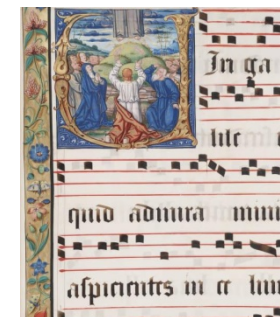 Iri ga
lile
quid admira mini
aspicientes in ce lum